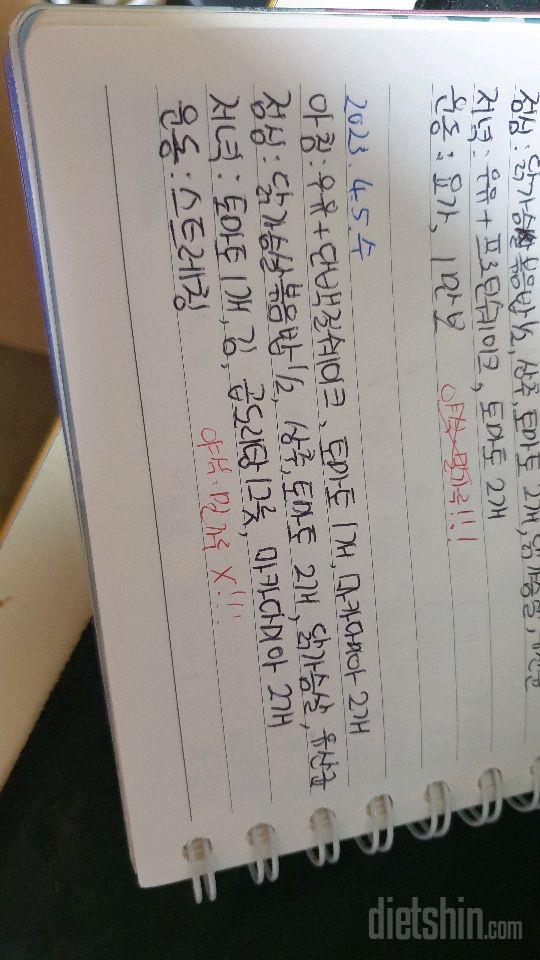 점심: 닭가슴살볶음밥 1/2, 상추, 토마토 2개, 닭가슴살, 유산균
저녁: 우유 + 프로틴쉐이크, 토마토 2개
운동: 요가, 1만보
야식·밀가루!!!
2023. 4.5.수
아침: 우유 + 단백질쉐이크, 토마토 1개, 마카다미아 2개
점심: 닭가슴살볶음밥 1/2, 상추, 토마토 2개, 닭가슴살, 유산균
저녁: 토마토 1개, 김, 곱도리탕 1그릇, 마카다미아 2개
운동: 스트레칭
야식·밀가루 X!!!
dietshin.com